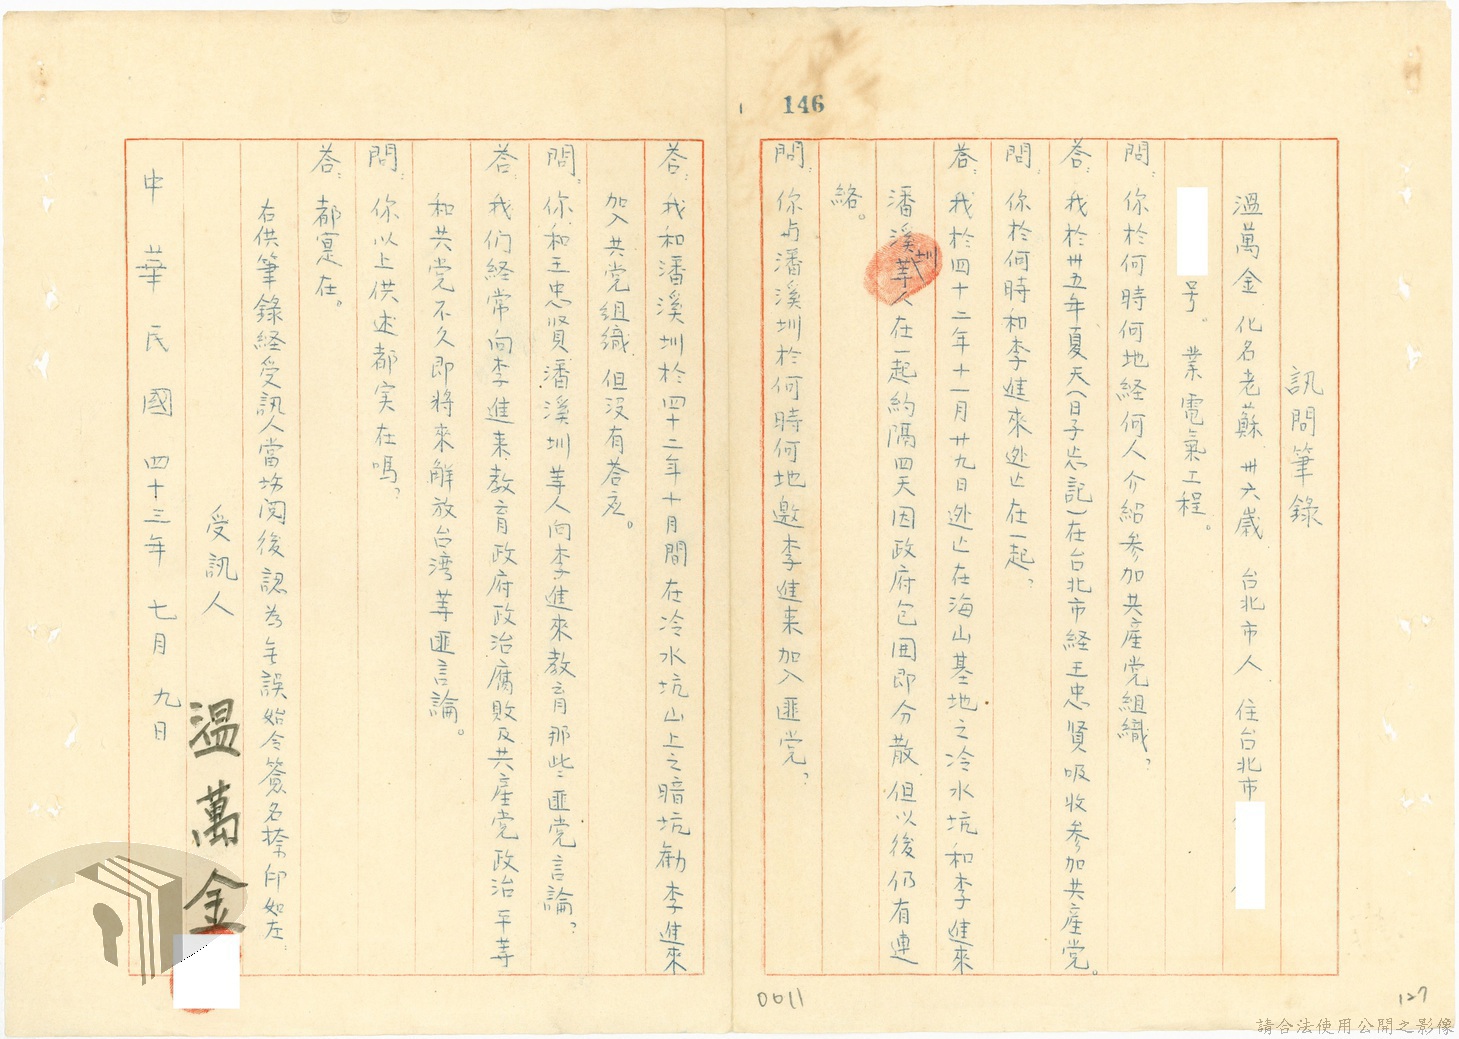 146
訊問筆錄
溫萬金 化名老蘇 卅六歲 台北市人 住台北市
号。業電氣工程。
問：你於何時何地経何人介紹参加共產党組織？
答：我於卅五年夏天(日子忘記)在台北市経王忠贤吸收参加共產党。
問：你於何時和李進來逃亡在一起？
答：我於四十二年十一月廿九日逃亡在海山基地之冷水坑和李進來
潘溪圳等人在一起約隔四天因政府包囲即分散但以後仍有連
絡。
問：你与潘溪圳於何時何地邀李進来加入匪党？
答：我和潘溪圳於四十二年十月間在冷水坑山上之暗坑勸李進來
加入共党組織 但没有荅应。
問：你和王忠贤潘溪圳等人向李進來教育那些匪党言論？
答：我们経常向李進来教育政府政治腐敗及共產党政治平等
和共党不久即将來解放台湾等匪言論。
問：你以上供述都实在嗎？
答：都寔在。
右供筆錄経受訊人當场阅後認為無誤始令簽名捺印如左：
受訊人
溫萬金
中華民國四十三年七月九日
0011
127
請合法使用公開之影像